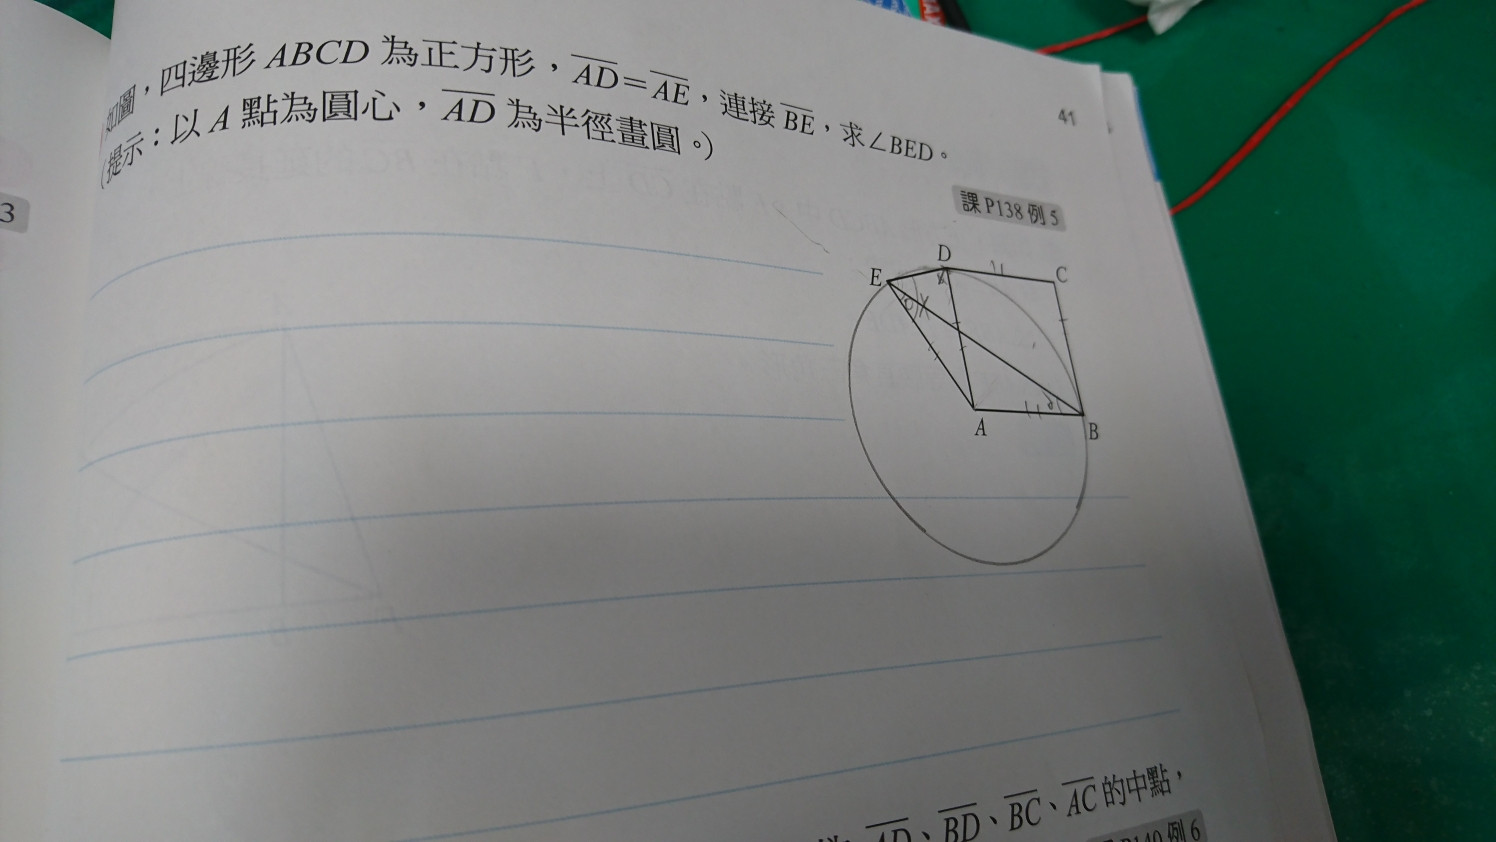 如圖，四邊形 ABCD 為正方形，AD=AE，連接 BE，求∠BED。
(提示：以 A 點為圓心，AD 為半徑畫圓。)
41
課 P138 例 5
3
D
C
E
A
B
AD、BD、BC、AC 的中點，
P140 例 6